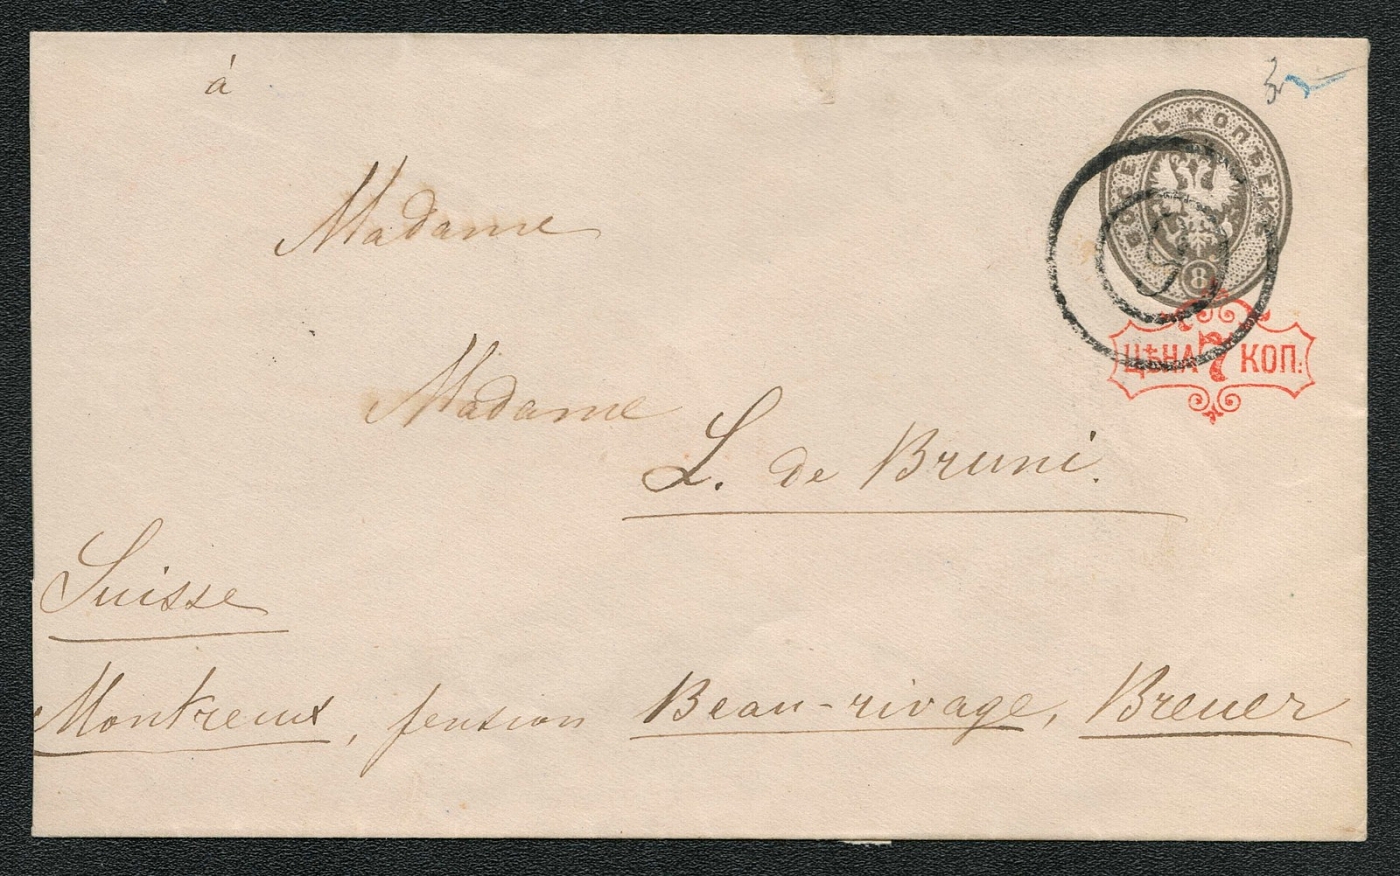 à
ВОСЕМЬ КОПѢЕКЪ
8
ЦѢНА 7 КОП.
Madame
Madame
L. de Bruni.
Suisse
Montreux, pension Beau-rivage, Breuer